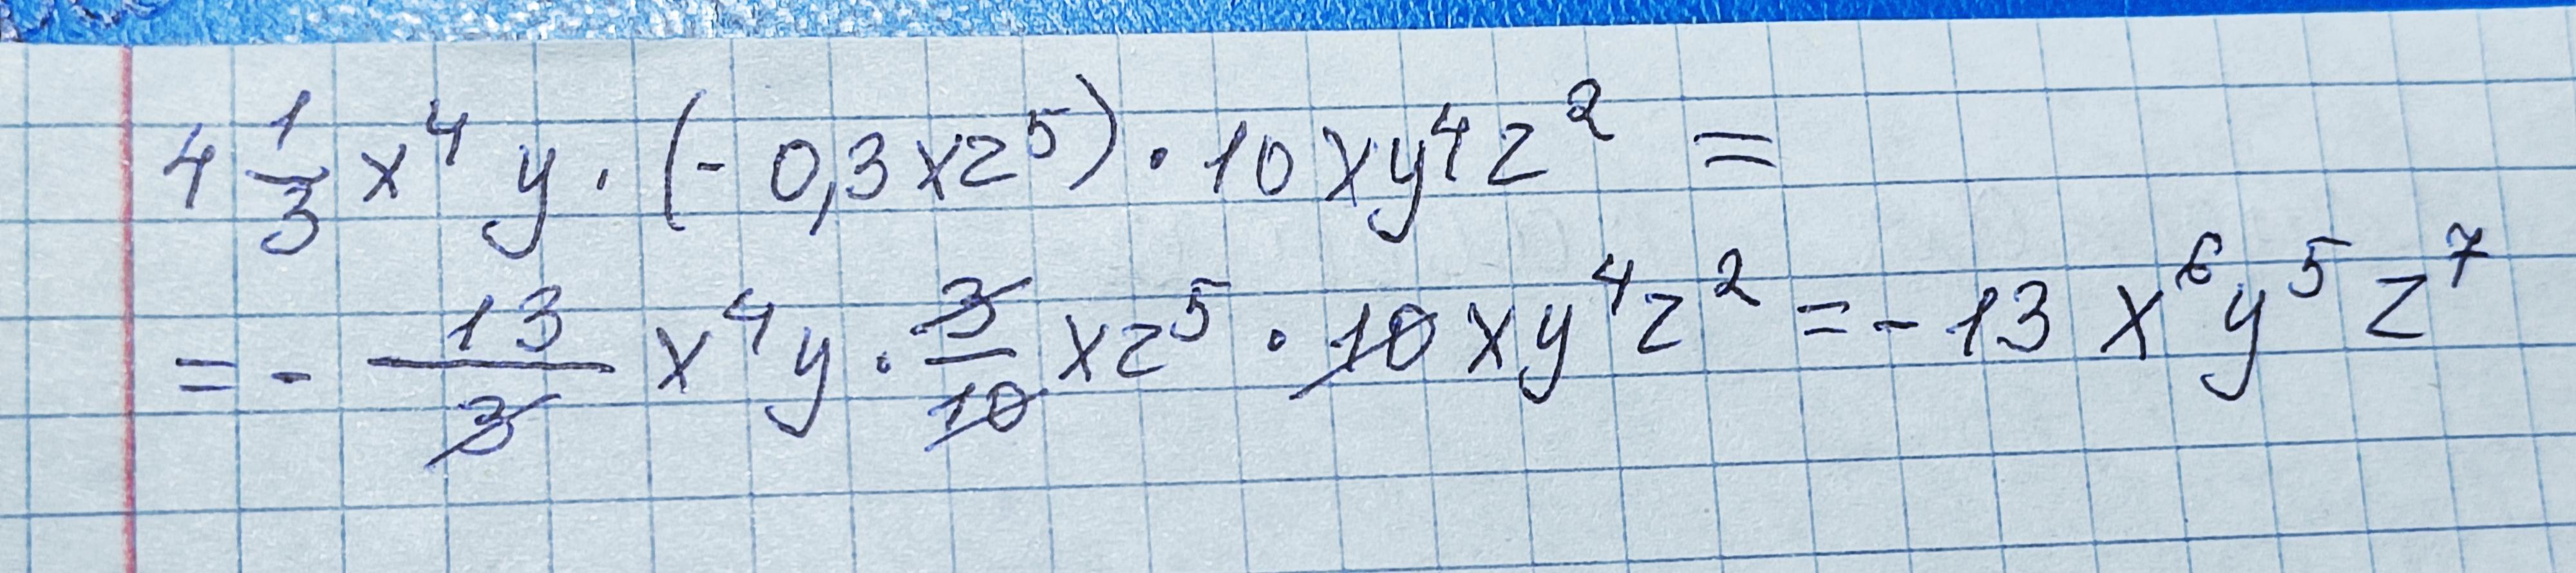 4 1/3 x⁴ y · (- 0,3 x z⁵) · 10 x y⁴ z² =
= - 13/3 x⁴ y · 3/10 x z⁵ · 10 x y⁴ z² = - 13 x⁶ y⁵ z⁷